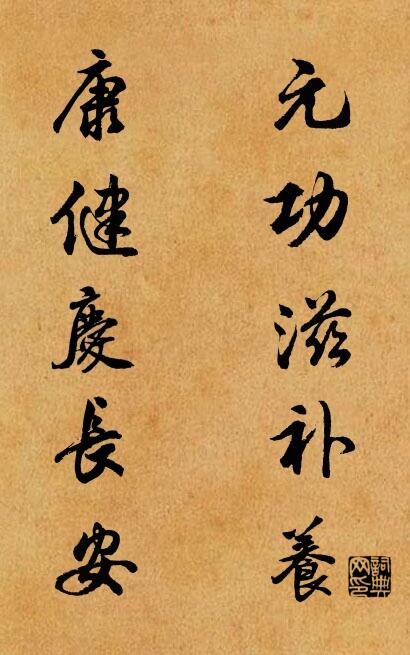 元功滋补養
康健慶長安
詞典网印